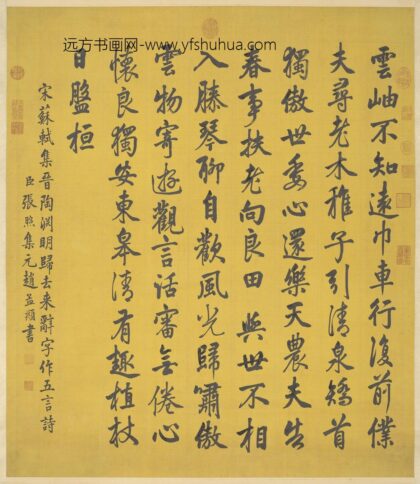 远方书画网-www.yfshuhua.com
雲岫不知遠巾車行復前僕
夫尋老木稚子引清泉矯首
獨傲世委心還樂天農夫告
春事扶老向良田 與世不相
入膝琴聊自歡風光歸嘯傲
雲物寄遊觀言話審無倦心
懷良獨安東皋清有趣植杖
日盤桓
宋蘇軾集晉陶淵明歸去來辭字作五言詩
臣張照集元趙孟頫書